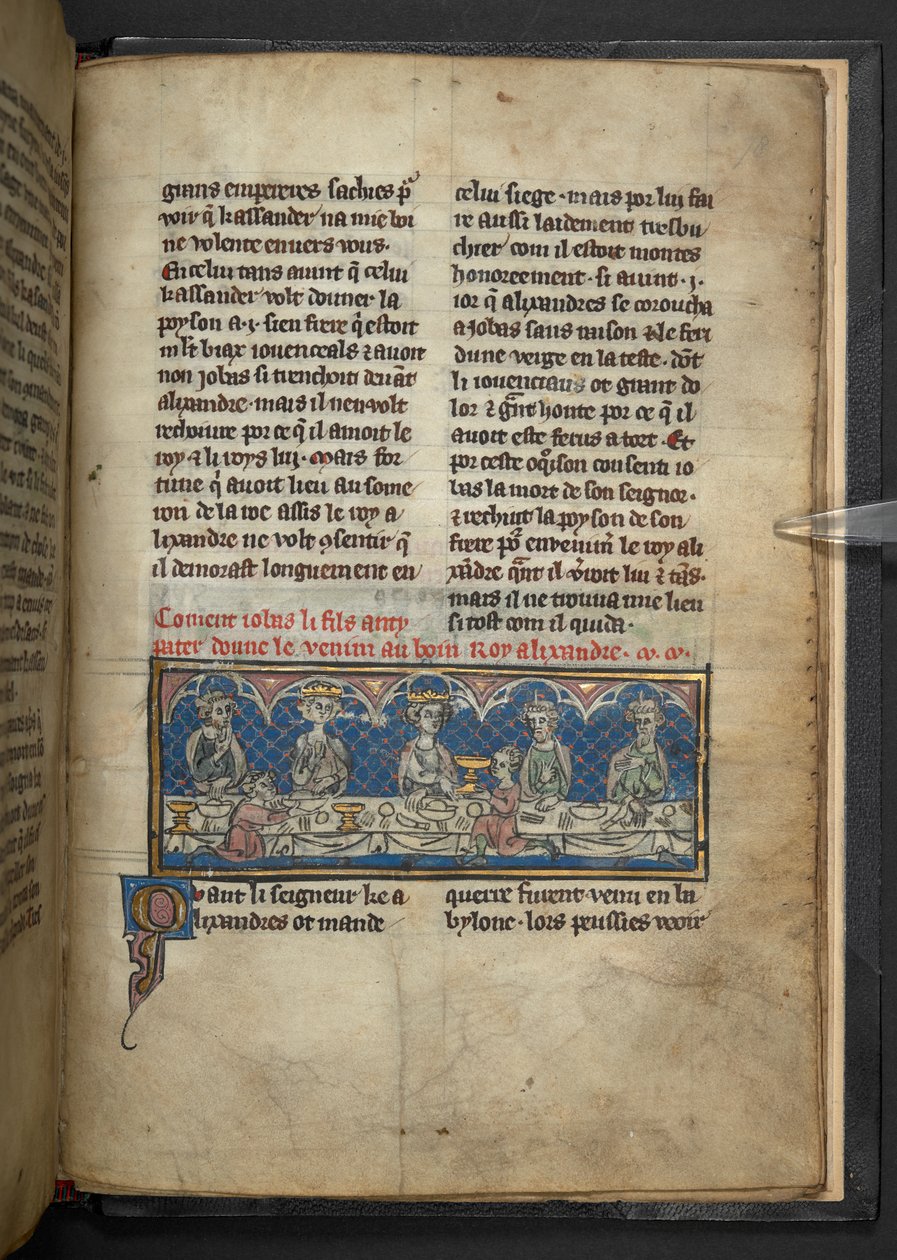 grans empereres sachies p̄
voir q̄ kassander na mie boi
ne volente enuers vous.
En celui tans auint q̄ celui
kassander volt douner la
poyson a .j. sien frere q̄ estoit
ml̄t biax iouenceals ⁊ auoit
non jobas si trenchoit deuāt
alixandre. mais il nen volt
rechoiure por ce q̄ il amoit le
roy ⁊ li roys lui. Mais for
tune q̄ auoit lieu au some
ron de la roe assis le roy a
lixandre ne volt ꝯsentir q̄
il demorast longuement en
Coment iobas li fils anty
pater doune le venim au boin Roy alixandre.
celui siege. mais por lui fai
re aussi laidement tresbu
chier com il estoit montes
honoreement. si auint .j.
ior q̄ alixandres se coroucha
a jobas sans raison ⁊ le feri
dune verge en la teste. dōt
li iouenciaus ot grant do
lor ⁊ gͣnt honte por ce q̄ il
auoit este ferus a tort. Et
por ceste oq̄ison consenti io
bas la mort de son seignor.
⁊ rechut la poyson de son
frere po᷒ enuenim̄ le roy ali
xādre qͣnt il v̓roit liu ⁊ tās.
mais il ne trouua mie lieu
si tost com il quida.
Quant li seigneur ke a
lixandres ot mande
querre furent venu en ba
bylone. lors peussies veoir